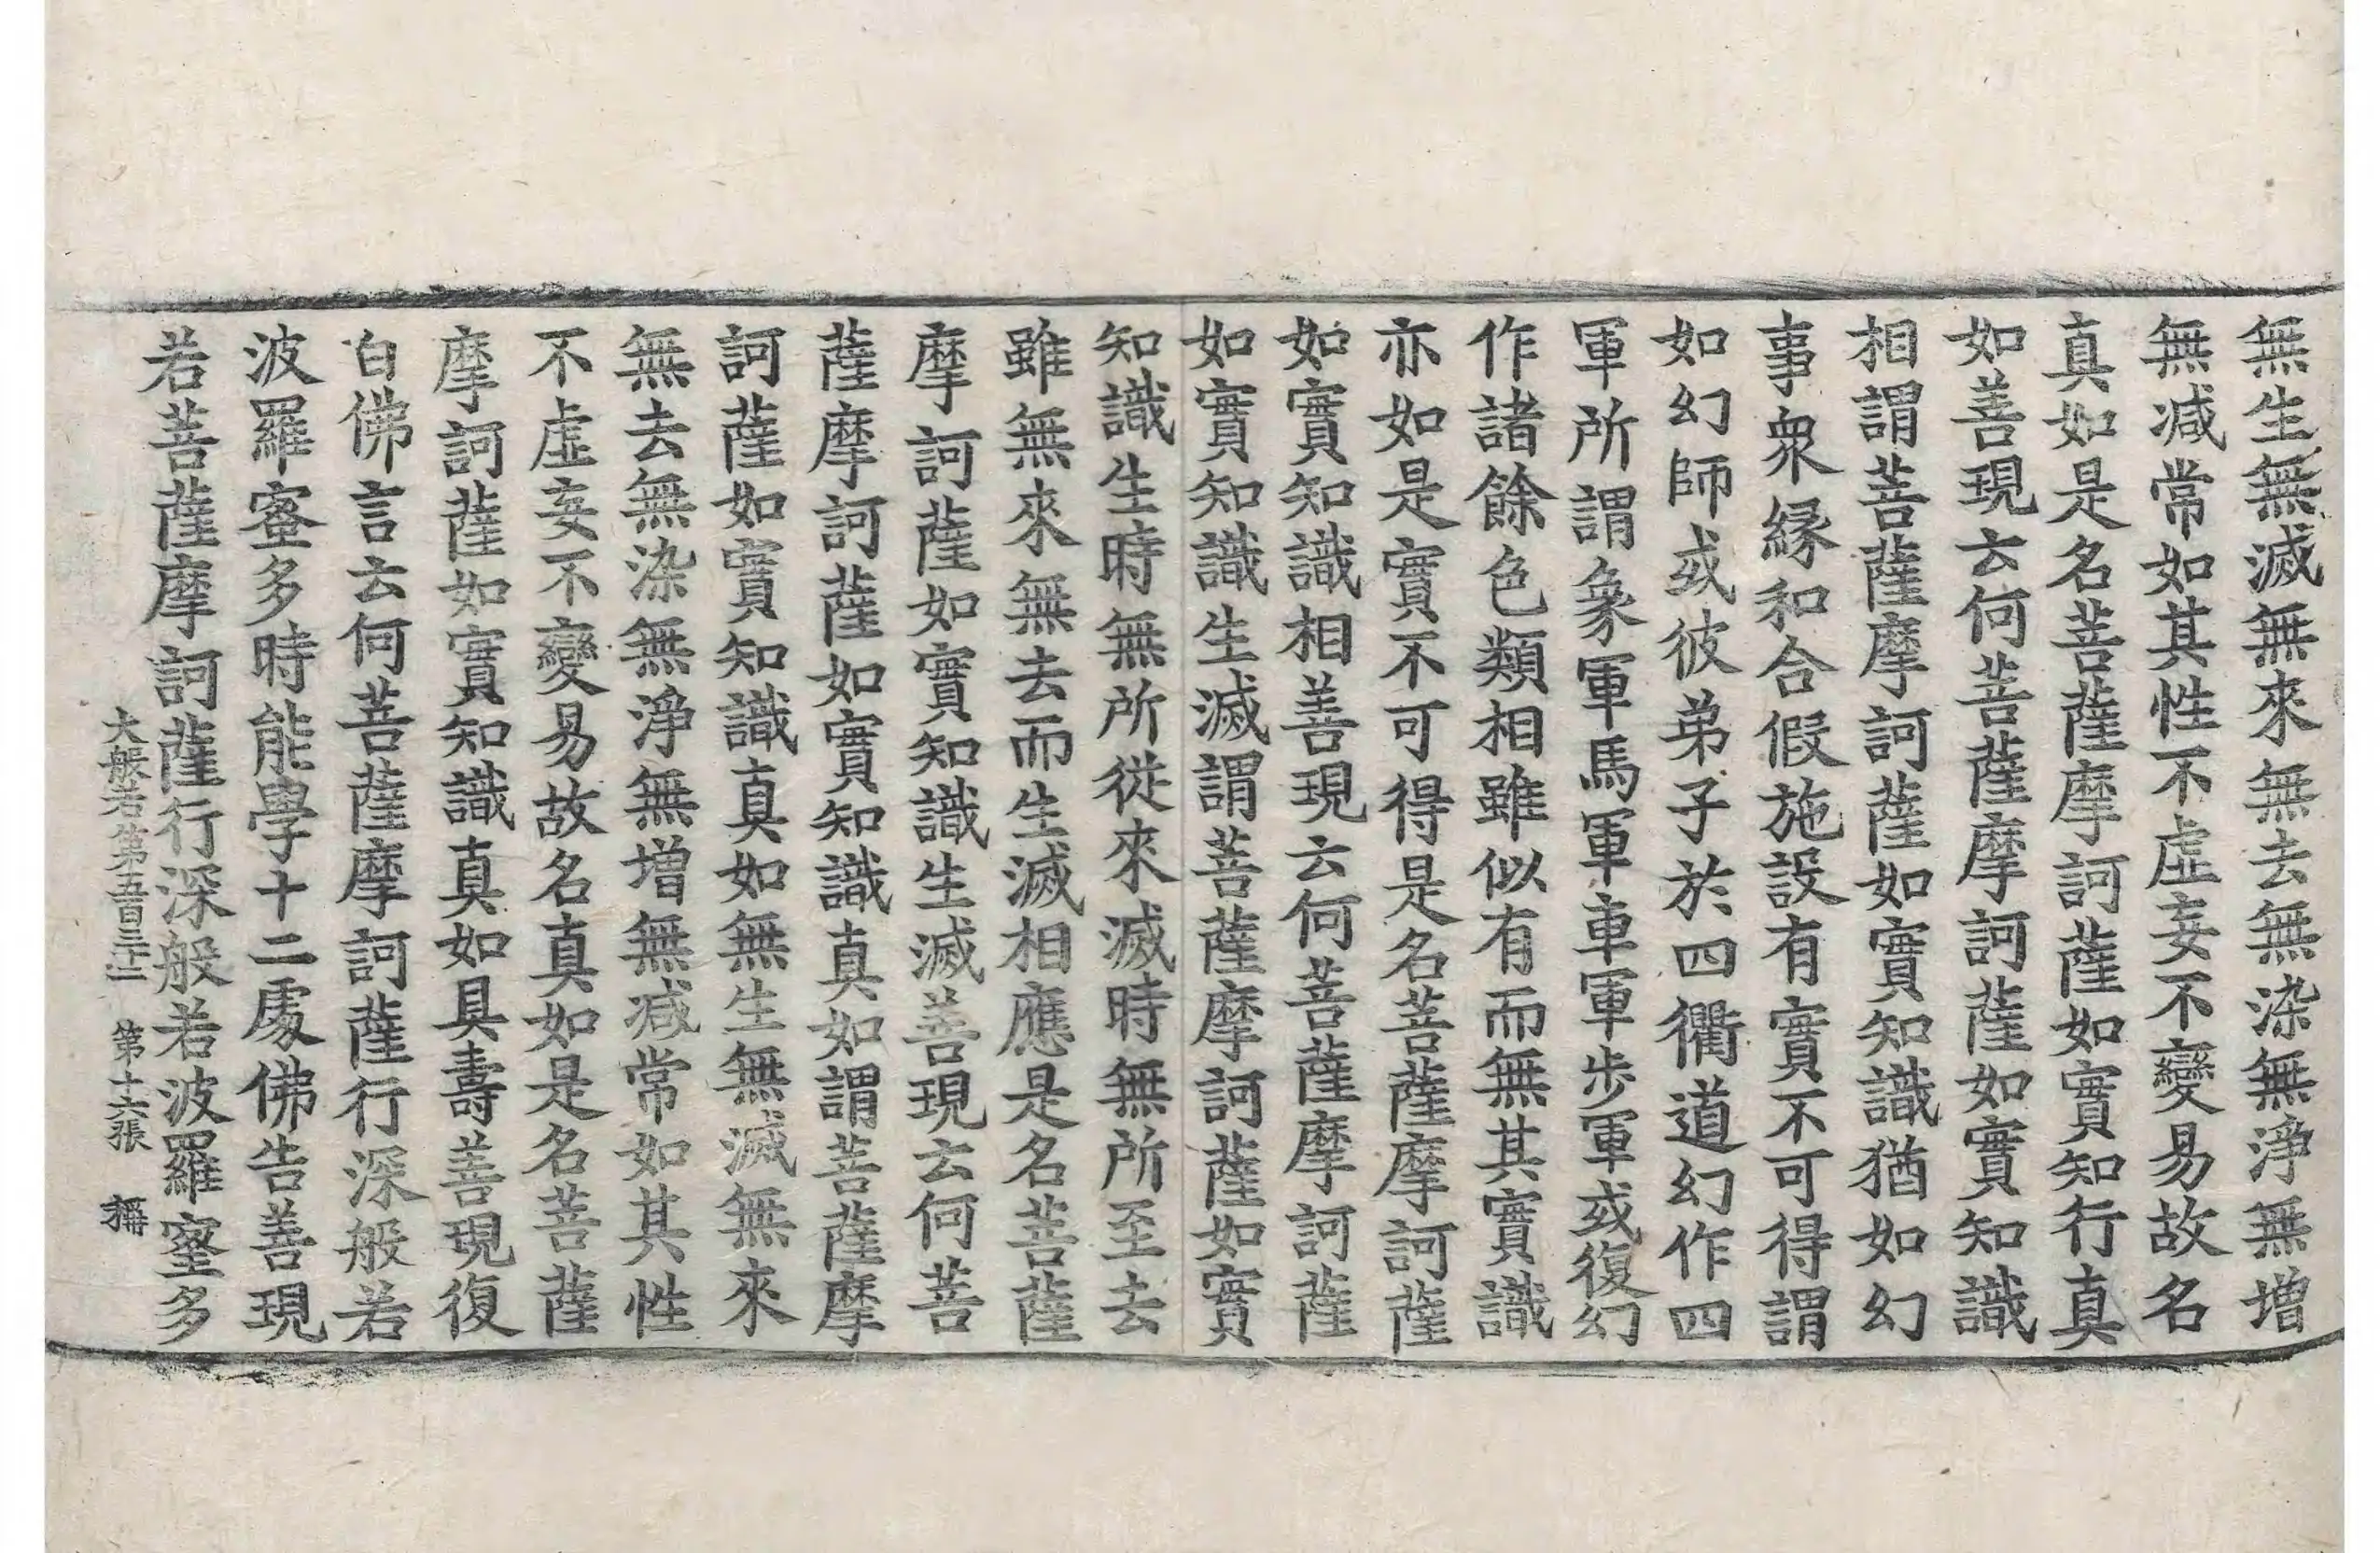 無生無滅無來無去無染無淨無增
無減常如其性不虛妄不變易故名
真如是名菩薩摩訶薩如實知行真
如善現云何菩薩摩訶薩如實知識
相謂菩薩摩訶薩如實知識猶如幻
事衆緣和合假施設有實不可得謂
如幻師或彼弟子於四衢道幻作四
軍所謂象軍馬軍車軍步軍或復幻
作諸餘色類相雖似有而無其實識
亦如是實不可得是名菩薩摩訶薩
如實知識相善現云何菩薩摩訶薩
如實知識生滅謂菩薩摩訶薩如實
知識生時無所從來滅時無所至去
雖無來無去而生滅相應是名菩薩
摩訶薩如實知識生滅善現云何菩
薩摩訶薩如實知識真如謂菩薩摩
訶薩如實知識真如無生無滅無來
無去無染無淨無增無減常如其性
不虛妄不變易故名真如是名菩薩
摩訶薩如實知識真如具壽善現復
白佛言云何菩薩摩訶薩行深般若
波羅蜜多時能學十二處佛告善現
若菩薩摩訶薩行深般若波羅蜜多
大般若第五百三十二 第十六張